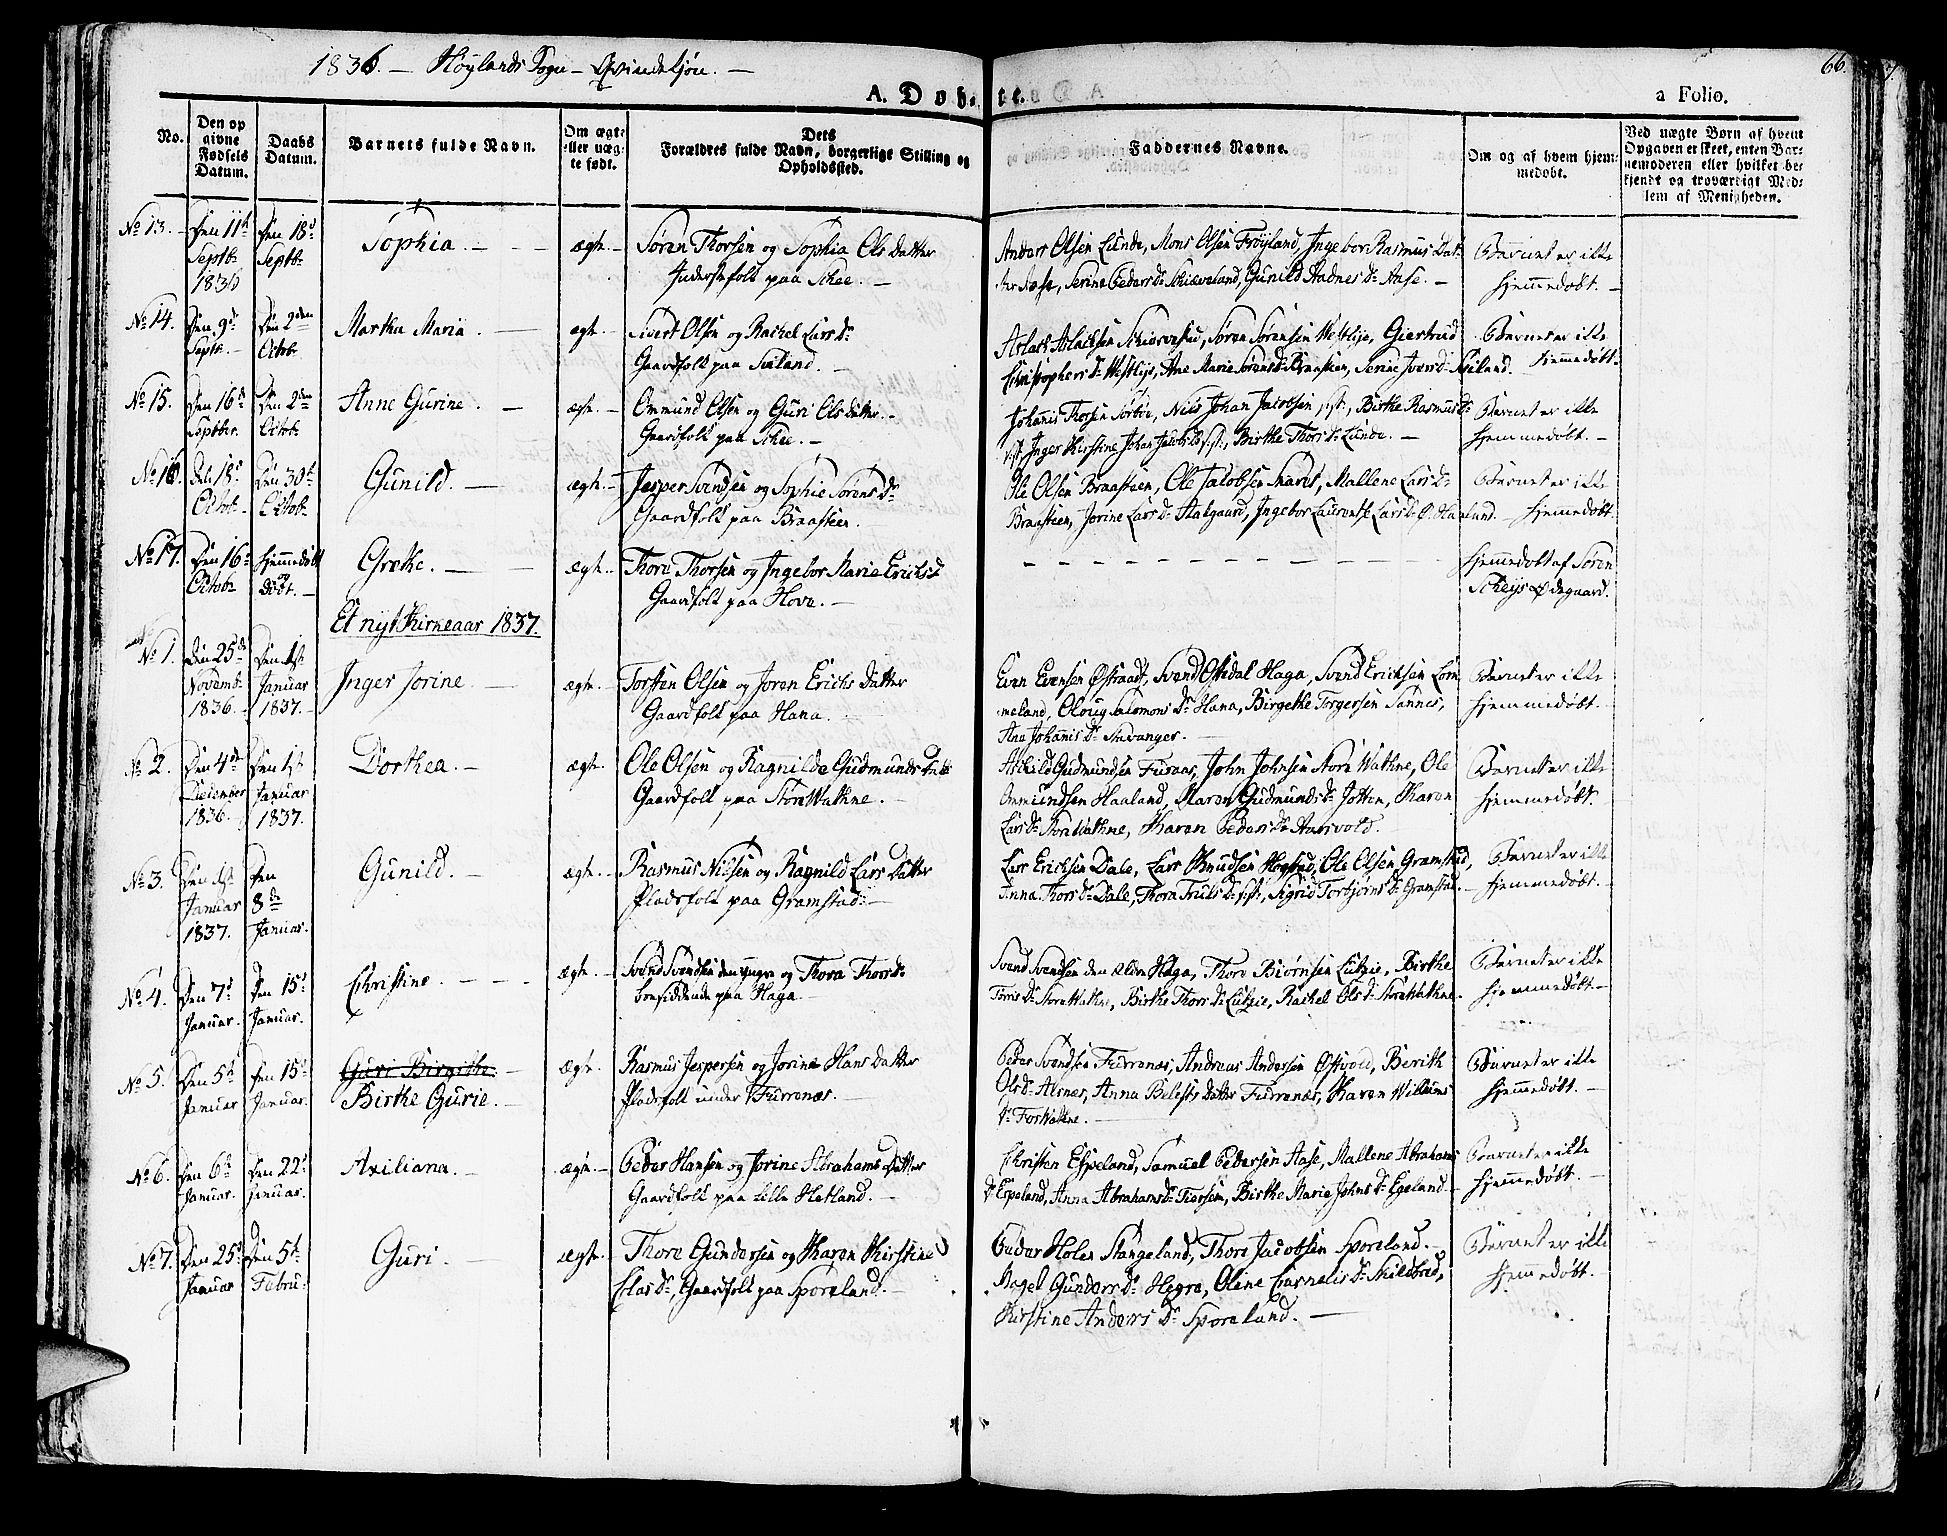 1836. — Höylands Sogn — Qvindekjøn. —
66.
A. Døbte.
a Folio.
No.
Den op
givne
Fødsels
Datum.
Daabs
Datum.
Barnets fulde Navn.
Om ægte
eller uæg-
te født.
Dets
Forældres fulde Navn, borgerlige Stilling og
Opholdssted.
Faddernes Navne.
Om og af hvem hjem-
medøbt.
Ved uægte Børn af hvem
Opgaven er skeet, enten Bar-
nemoderen eller hvilket be-
kjendt og troværdigt Med-
lem af Menigheden.
No 13. Den 11te Septbr 1836 Den 18d Septbr Sophia. ægte. Søren Thorsen og Sophia Ols Datter
Inderstefolk paa Schee. —
Anders Olsen Lunde, Mons Olsen Fröyland, Ingebor Rasmus Dat-
ter Aase, Serine Peders Dr Schiæveland, Gunild Aadnes Dr Aase. —
Barnet er ikke
hjemmedøbt. —
No 14. Den 9de Septr. Den 2den Octobr Martha Maria. ægte. Sivert Olsen og Rachel Lars Dr
Gaardfolk paa Sæland. —
Aslach Aslachsen, Søren Sørensen Westlye, Giertrud
Christophers Dr Westlye, Ane Marie Sørens Dr Braasteen, Serine Ivers Dr Sæland.
Barnet er ikke
hjemmedøbt.
No 15. Den 16de Septber. Den 2den Octobr Anne Gurine. ægte. Ommund Olsen og Guri Ols Datter.
Gaardfolk paa Schee. —
Johannis Thorsen Sørboe, Niels Johan Jacobsen, Birthe Rasmus Dr
Inger Kirstine, Birthe Thors Dr Lunde. —
Barnet er ikke
hjemmedøbt. —
No 16. Den 18d Octobr. Den 30te Octobr. Gunild. ægte. Jesper Svendsen og Sophie Sørens Dr
Gaardfolk paa Braasteen.
Ole Olsen Braasteen, Ole Jacobsen, Mallene Lars Dr
Braasteen, Jorine Lars Dr Aalgaard, Ingebor Laurentse Lars Dr
Barnet er ikke
hjemmedøbt.
No 17. Den 16de Octobr hjemmedøbt og Død. Grethe. ægte. Thore Thorsen og Ingebor Marie Erichs D
Gaardfolk paa Hove. —
Hjemmedøbt af Søren
Ødegaard.
Et nyt Kirkeaar 1837.
No 1. Den 25de Novemb. 1836. Den 1ste Januar 1837. Inger Jorine. ægte. Torsten Olsen og Joren Erichs Datter
Gaardfolk paa Hana.
Even Evensen Østraadt, Svend Haga, Svend Ericksen Lom-
meland, Oloug Salomons Dr Hana, Birgethe Torgersen Sannes,
Ane Johannis Dr Stavanger. —
Barnet er ikke
hjemmedøbt.
No 2. Den 4de December 1836. Den 1ste Januar 1837. Dorthea. ægte. Ole Olsen og Ragnilde Gudmunds Datter
Gaardfolk paa Store Wathne.
Gudmundsen Furaas, John Johnsen Store Wathne, Ole
Ommundsen Haaland, Maren Gudmunds Dr Jotten, Karen
Lars Dr Store Wathne, Karen Peders Dr Aarsvold.
Barnet er ikke
hjemmedøbt.
No 3. Den 1ste Januar 1837. Den 8de Januar. Gunild. ægte. Rasmus Nilsen og Ragnild Lars Datter
Pladsfolk paa Gramstad.
Lars Ericksen Dale, Lars Knudsen Hogstad, Ole Olsen Gramstad,
Anna Thors Dr Dale, Thora Truls Dr, Sigrid Torbjørns Dr Gramstad.
Barnet er ikke
hjemmedøbt.
No 4. Den 7d Januar. Den 15d Januar. Christine. ægte. Svend Svendsen den yngre og Thora Thors Dr
boesiddende paa Haga.
Svend Svendsen den ældre Haga, Thore Biørnsen Lutzie, Birthe
Torris Dr Store Wathne, Birthe Thors Dr Lutzie, Rachel Ols Dr Store Wathne.
Barnet er ikke
hjemmedøbt. —
No 5. Den 5te Januar Den 15d Januar. Guri Birgithe
Birthe Gurie. ægte. Rasmus Jespersen og Jorine Hans Datter
Pladsfolk under Furrenæs.
Peder Svendsen Furrenæs, Andreas Andersen, Berith
Ols Dr Alsnes, Anna Datter Furrenæs, Karen Willums
Dr ForWathne.
Barnet er ikke
hjemmedøbt. —
No 6. Den 6te Januar. Den 22d Januar. Axiliana. ægte. Peder Hansen og Jorine Abrahams Datter
Gaardfolk paa Lille Hetland.
Christen Espeland, Samuel Pedersen Aase, Mallene Abrahams
Dr Espeland, Anna Abrahams Dr, Birthe Marie Johns Dr Egeland.
Barnet er ikke
hjemmedøbt.
No 7. Den 25d Januar Den 5te Febru: Guri. ægte. Thore Gundersen og Karen Kirstine
Elas Dr, Gaardfolk paa Sporeland.
Peder Holen Stangeland, Thore Jacobsen Sporeland.
Magel Gunders Dr Hegre, Oline Cornelis Dr Skibstad,
Kirstine Anders Dr Sporeland. —
Barnet er ikke
hjemmedøbt.